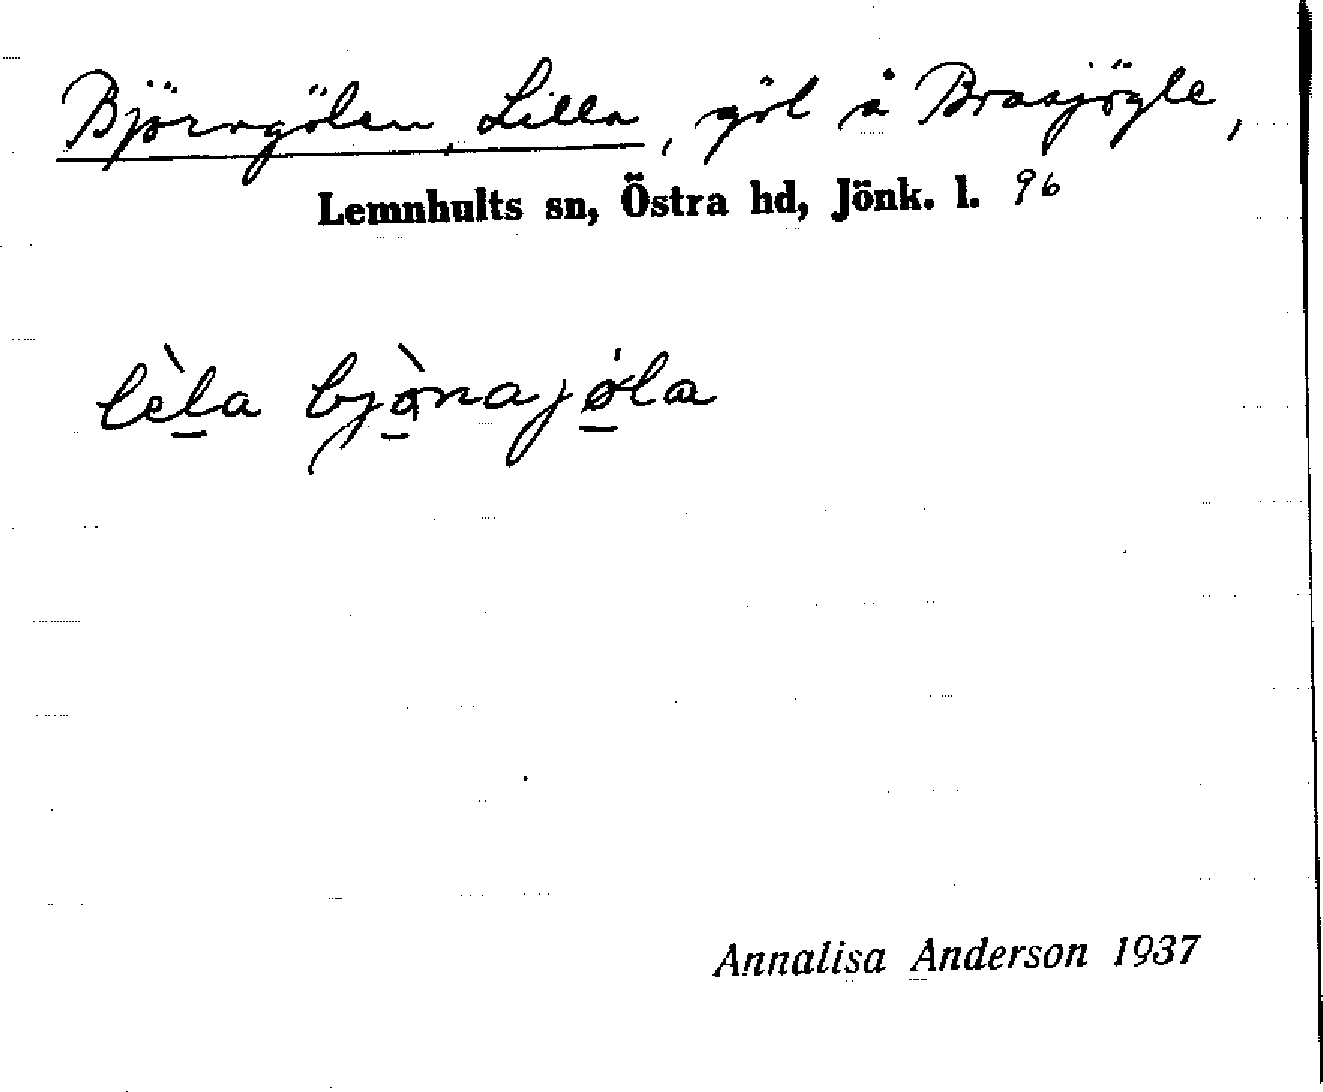 Björngölen, Lilla, göl å Brasjögle,
Lemnhults sn, Östra hd, Jönk. l. 96
lèla bjònajøla
Annalisa Anderson 1937